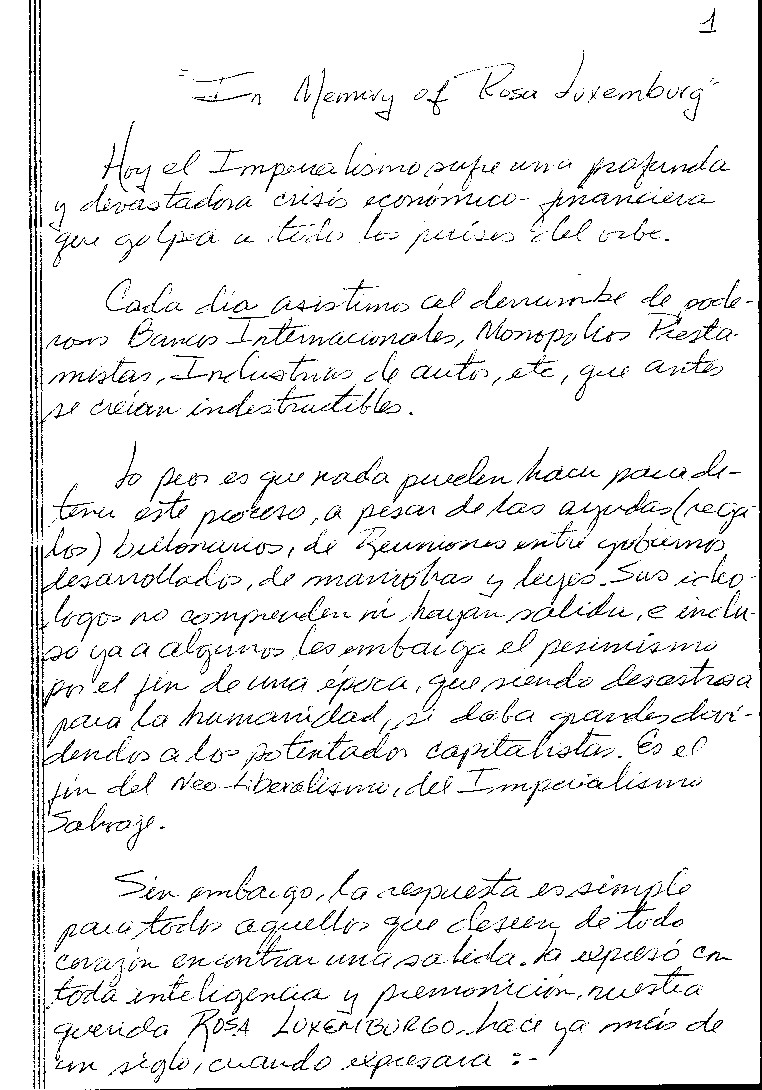 1
"In Memory of Rosa Luxemburg"
Hoy el Imperialismo sufre una profunda
y devastadora crisis económico-financiera
que golpea a todos los países del orbe.
Cada día asistimos al derrumbe de pode-
rosos Bancos Internacionales, Monopolios Presta-
mistas, Industrias de autos, etc, que antes
se creían indestructibles.
Lo peor es que nada pueden hacer para de-
tener este proceso, a pesar de las ayudas (rega-
los) billonarios, de Reuniones entre gobiernos
desarrollados, de maniobras y leyes. Sus ideo-
logos no comprenden ni hayan salida, e inclu-
so ya a algunos les embarga el pesimismo
por el fin de una época, que siendo desastrosa
para la humanidad, si daba grandes divi-
dendos a los potentados capitalistas. Es el
fin del Neo-Liberalismo, del Imperialismo
Salvaje.
Sin embargo, la respuesta es simple
para todos aquellos que deseen de todo
corazón encontrar una salida. La expresó con
toda inteligencia y premonición, nuestra
querida ROSA LUXEMBURGO, hace ya más de
un siglo, cuando expresara :-